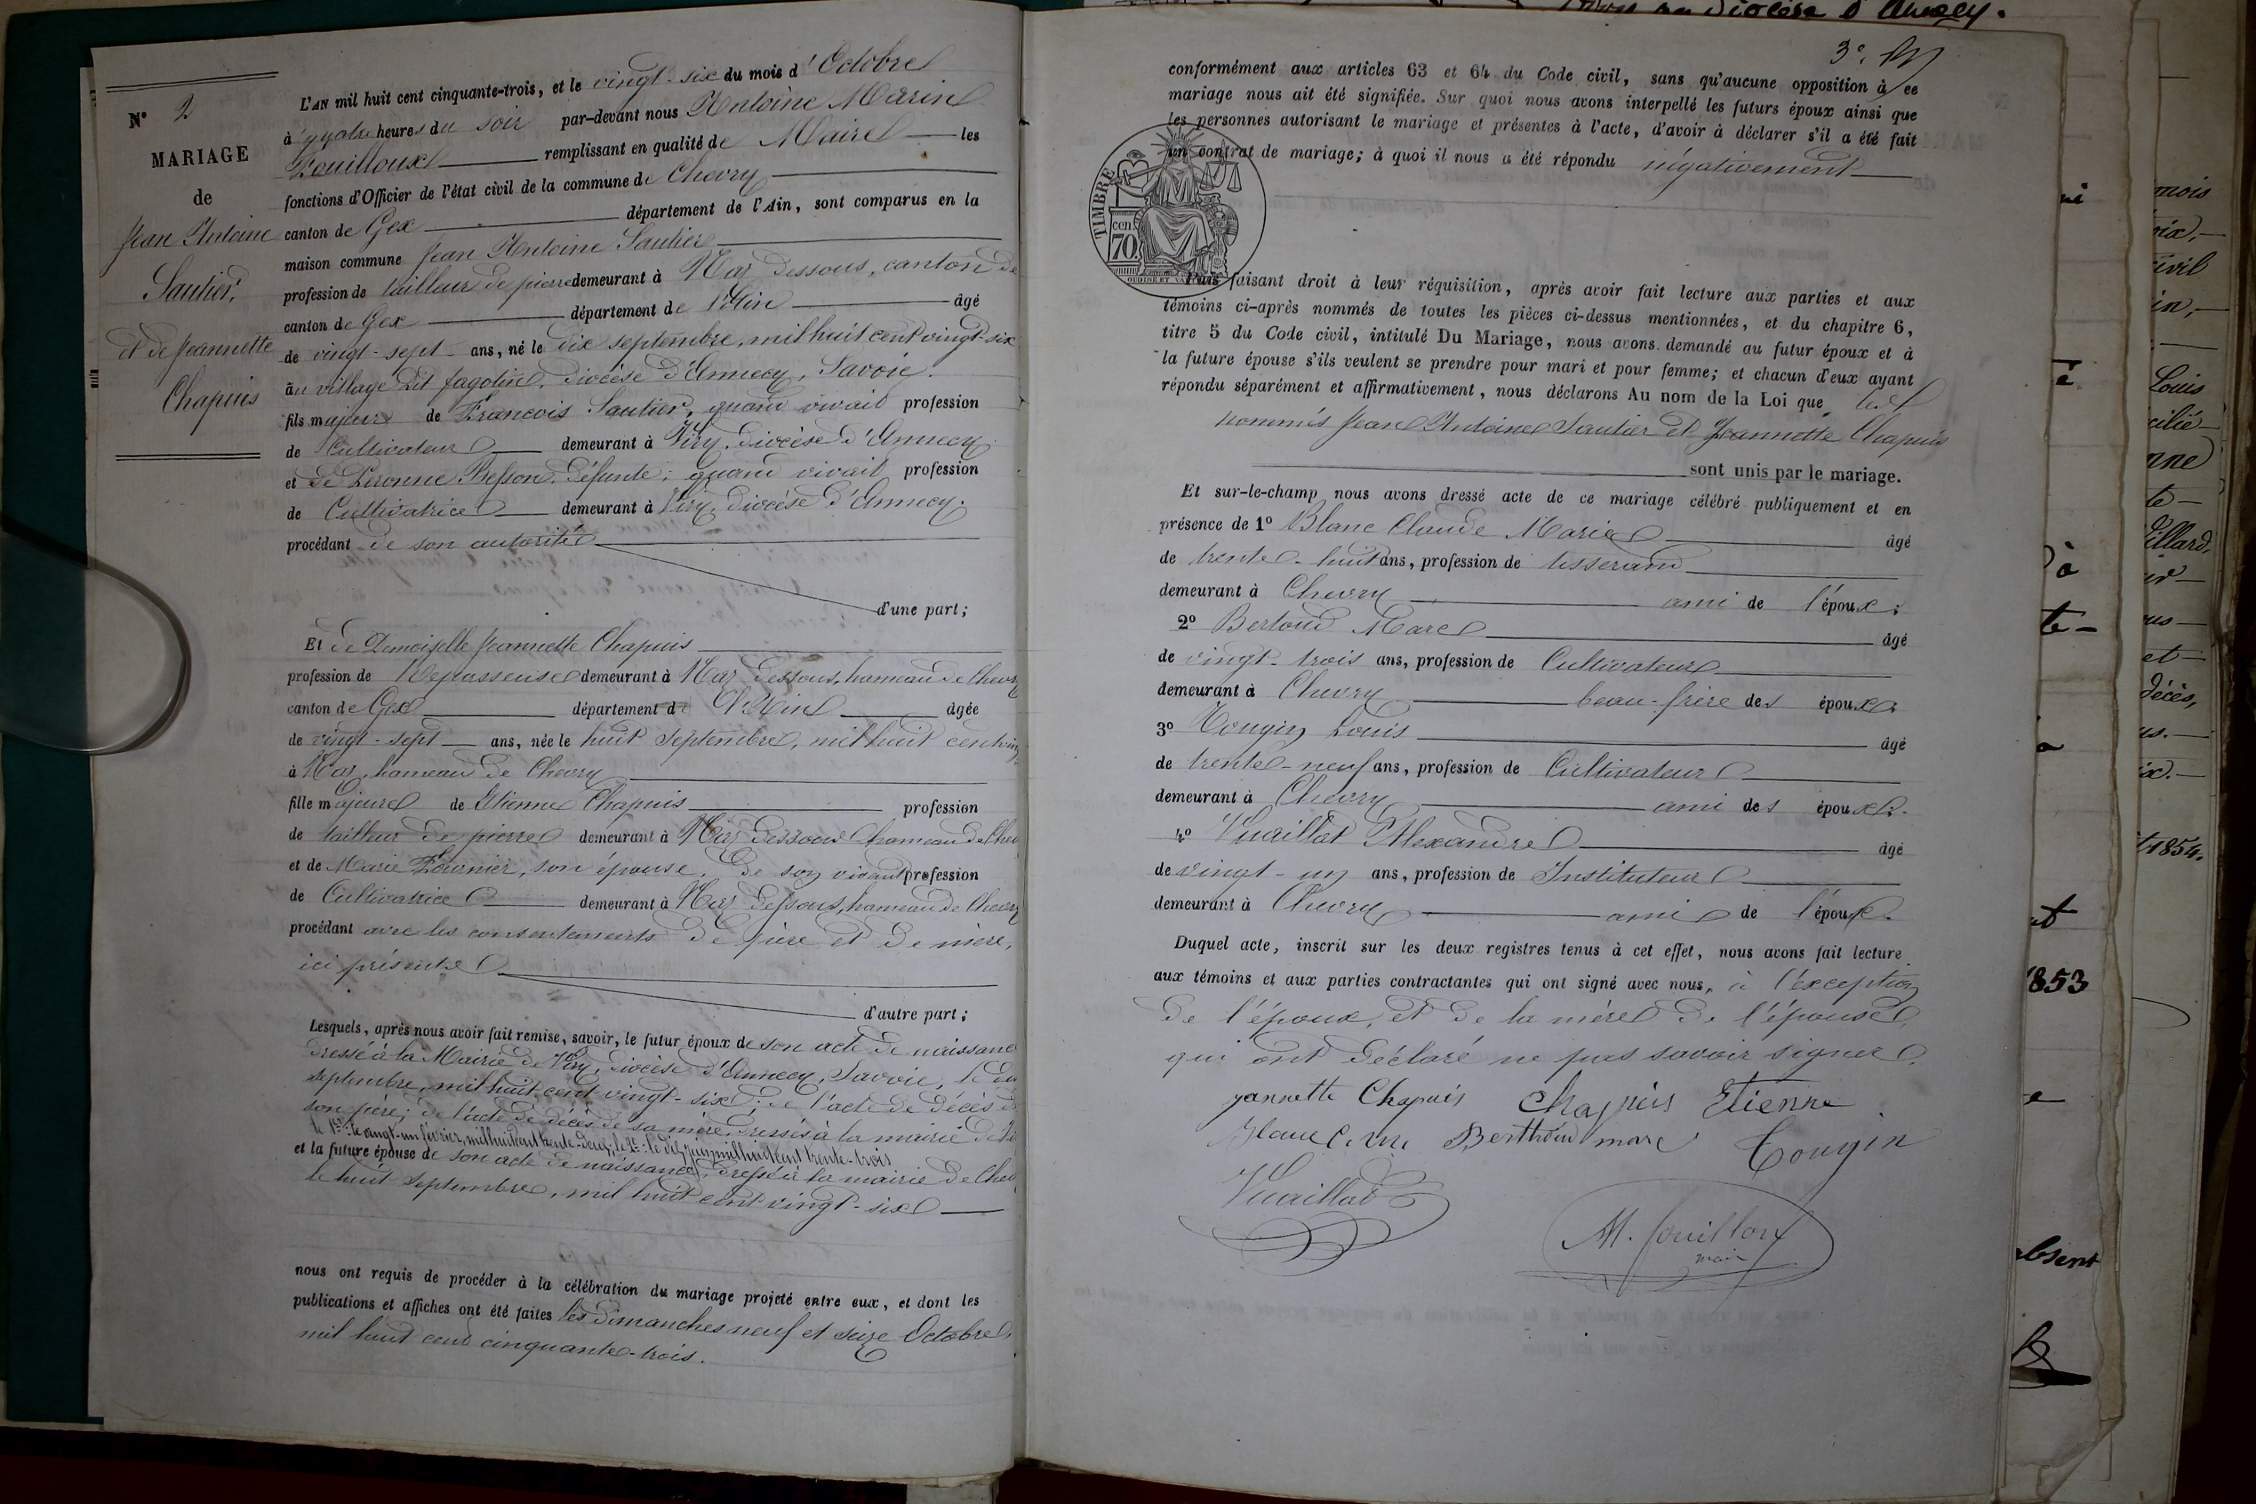 N° 2
MARIAGE
de
Jean Antoine
Sautier,
et de Jeannette
Chapuis
L'AN mil huit cent cinquante-trois, et le vingt-six du mois d'Octobre
à quatre heures du soir par-devant nous Antoine Marin
Fouilloux remplissant en qualité de Maire les
fonctions d'Officier de l'état civil de la commune de Chevry
canton de Gex département de l'Ain, sont comparus en la
maison commune Jean Antoine Sautier
profession de tailleur de pierre demeurant à Naz dessous, canton de
canton de Gex département de l'Ain âgé
de vingt-sept ans, né le dix septembre, mil huit cent vingt-six
au village dit fagotin, diocèse d'Annecy, Savoie.
fils majeur de François Sautier, quand vivait profession
de Cultivateur demeurant à Viry, diocèse d'Annecy
et de Peronne Besson, défunte; quand vivait profession
de Cultivatrice demeurant à Viry, diocèse d'Annecy.
procédant de son autorité
d'une part;
Et de Demoiselle Jeannette Chapuis
profession de Repasseuse demeurant à Naz dessous, hameau de Chevry
canton de Gex département de l'Ain âgée
de vingt-sept ans, née le huit Septembre, mil huit cent
à Naz, hameau de Chevry
fille majeure de Etienne Chapuis profession
de tailleur de pierre demeurant à Naz dessous hameau de Chev
et de Marie Fournier, son épouse. De son vivant profession
de Cultivatrice demeurant à Naz dessous, hameau de Chevry
procédant avec les consentements de père et de mère,
ici présents
d'autre part;
Lesquels, après nous avoir fait remise, savoir, le futur époux de son acte de naissance
dressé à la Mairie de Viry, diocèse d'Annecy, Savoie, le
septembre, mil huit cent vingt-six; de l'acte de décès de
son père; de l'acte de décès de sa mère, dressés à la mairie de
le 1er le vingt-un février, mil huit cent trente-deux, le 2e le dix juin mil huit cent trente-trois
et la future épouse de son acte de naissance, dressé à la mairie de Chev
le huit Septembre, mil huit cent vingt-six
nous ont requis de procéder à la célébration du mariage projeté entre eux, et dont les
publications et affiches ont été faites les dimanches neuf et seize Octobre,
mil huit cent cinquante-trois.
3e.
conformément aux articles 63 et 64 du Code civil, sans qu'aucune opposition à ce
mariage nous ait été signifiée. Sur quoi nous avons interpellé les futurs époux ainsi que
les personnes autorisant le mariage et présentes à l'acte, d'avoir à déclarer s'il a été fait
un contrat de mariage; à quoi il nous a été répondu négativement
TIMBRE
cen.
70.
Puis faisant droit à leur réquisition, après avoir fait lecture aux parties et aux
témoins ci-après nommés de toutes les pièces ci-dessus mentionnées, et du chapitre 6,
titre 5 du Code civil, intitulé Du Mariage, nous avons demandé au futur époux et à
la future épouse s'ils veulent se prendre pour mari et pour femme; et chacun d'eux ayant
répondu séparément et affirmativement, nous déclarons Au nom de la Loi que les
nommés Jean Antoine Sautier et Jeannette Chapuis
sont unis par le mariage.
Et sur-le-champ nous avons dressé acte de ce mariage célébré publiquement et en
présence de 1° Blanc Claude Marie âgé
de trente-huit ans, profession de tisserand
demeurant à Chevry ami de l'époux;
2° Bertoud Marc âgé
de vingt-trois ans, profession de Cultivateur
demeurant à Chevry beau-frère des époux;
3° Tougin Louis âgé
de trente-neuf ans, profession de Cultivateur
demeurant à Chevry ami des époux.
4° Vuaillat Alexandre âgé
de vingt-un ans, profession de Instituteur
demeurant à Chevry ami de l'époux.
Duquel acte, inscrit sur les deux registres tenus à cet effet, nous avons fait lecture
aux témoins et aux parties contractantes qui ont signé avec nous, à l'exception
de l'époux, et de la mère de l'épouse,
qui ont déclaré ne pas savoir signer.
jannette Chapuis Chapuis Etienne
Blanc Berthoud marc Tougin
Vuaillat
M. fouilloux
maire
diocèse d'Annecy.
mois
civil
Louis
Villard,
décès,
t 1854.
1853
absent